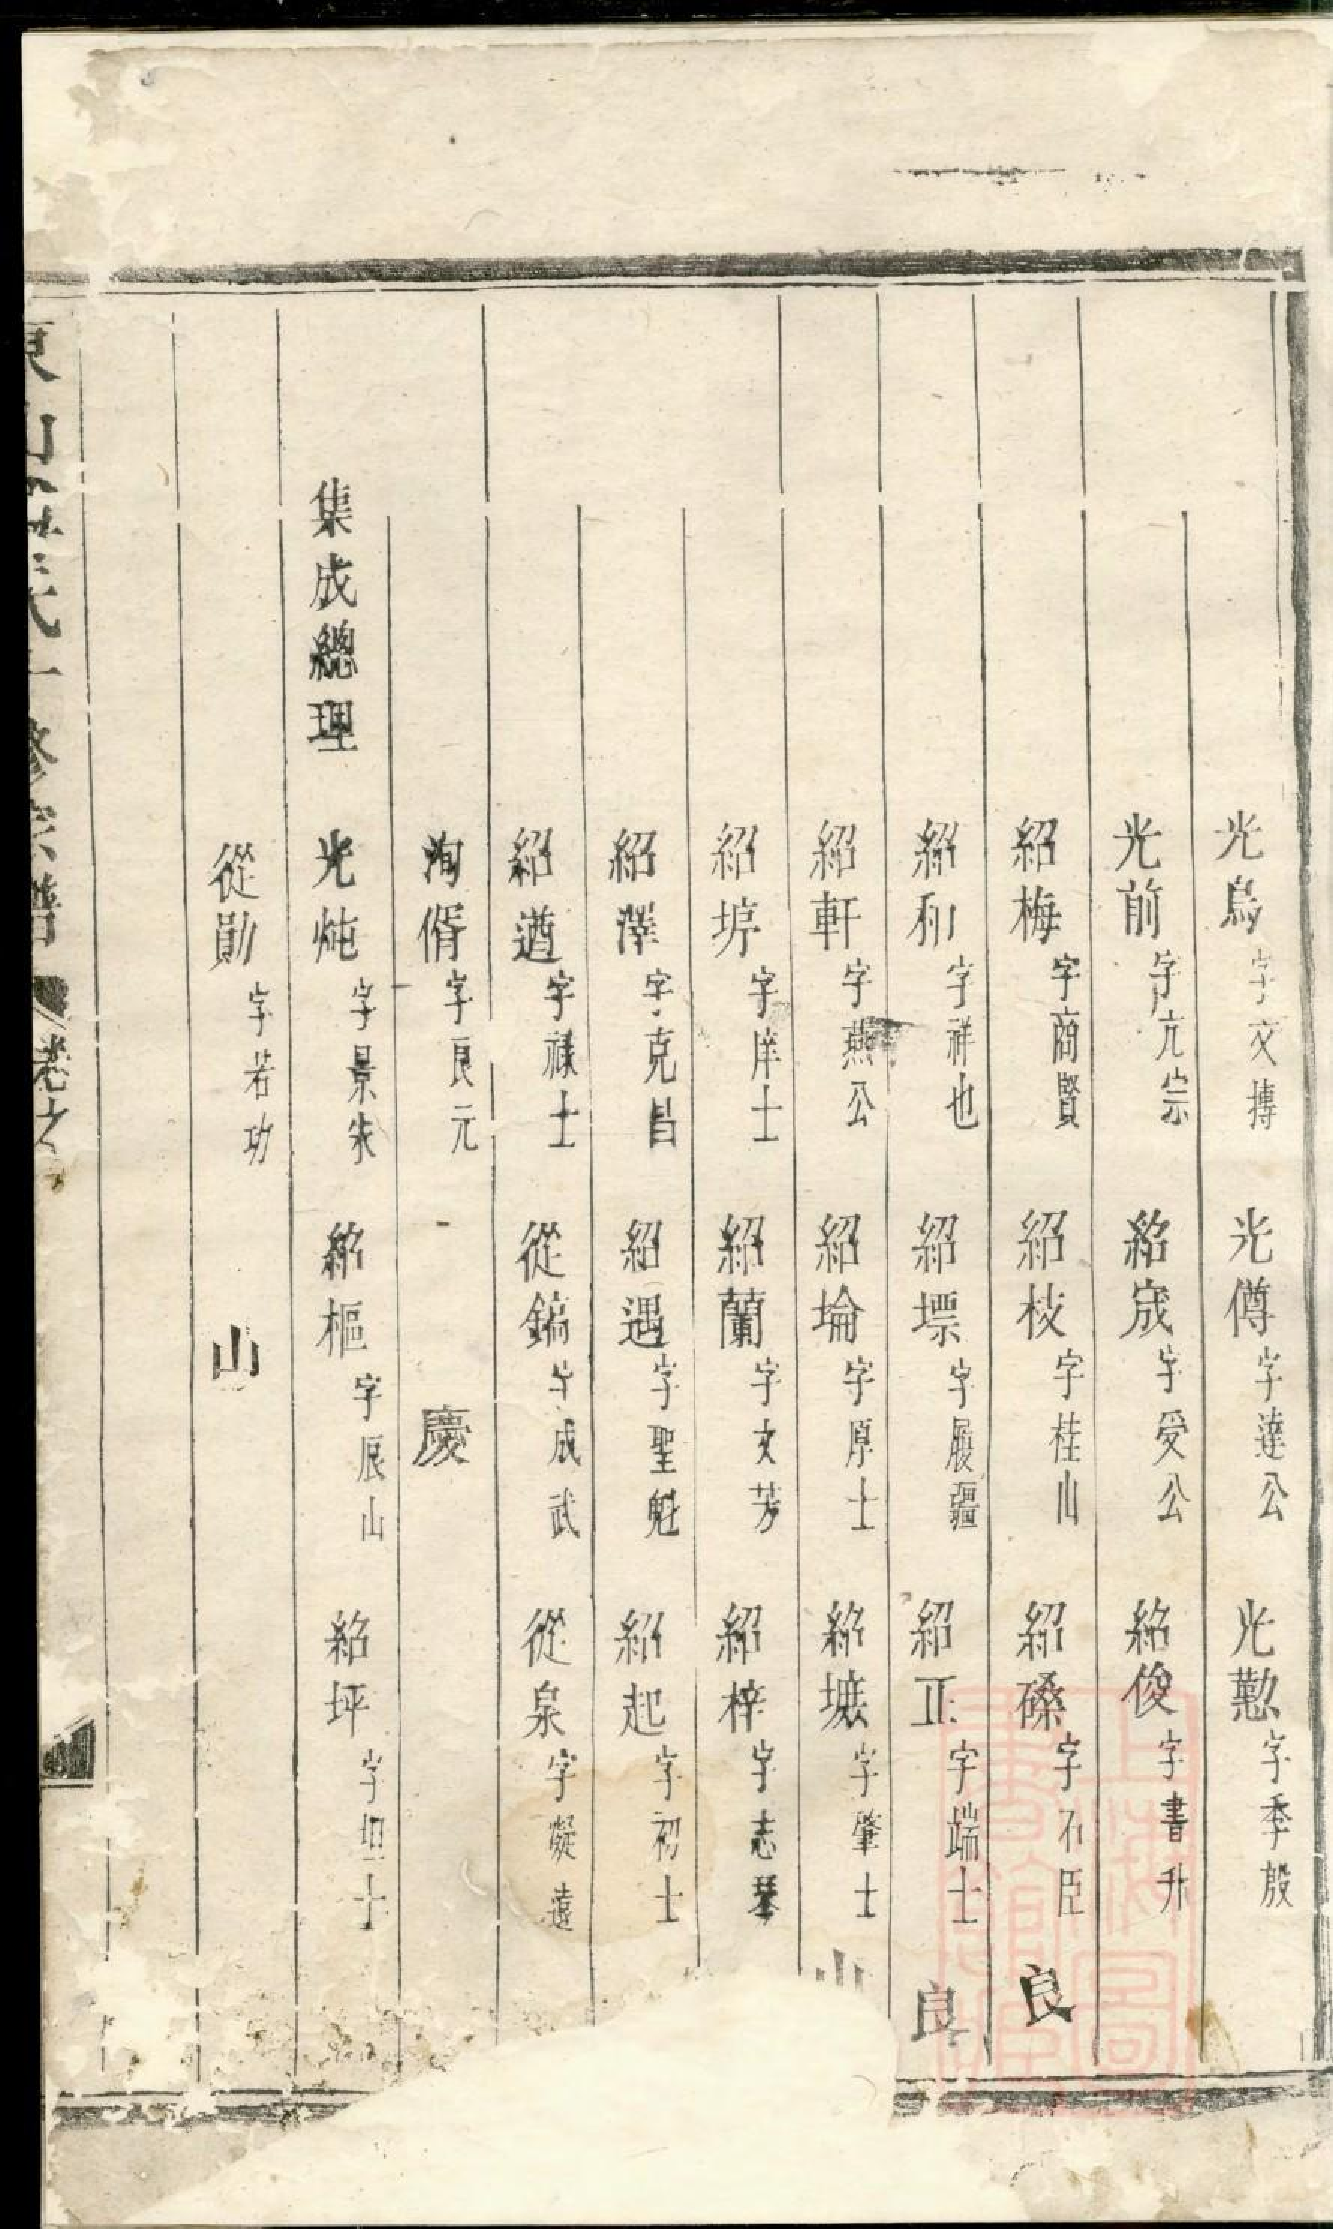 光烏字文摶 光僔字達公 光懃字季殷
光前字亢宗 紹宬字受公 紹俊字書升
紹梅字商賢 紹枝字桂山 紹磉字石臣 良
紹和字祥也 紹墂字履疆 紹正字端士 良
紹軒字燕公 紹埨字原士 紹壙字肇士 山
紹垿字庠士 紹蘭字文芳 紹梓字志琴
紹澤字克昌 紹遇字聖魁 紹起字初士
紹遒字祿士 從鎬字成武 從泉字凝遠
洵偦字良元 慶
集成總理 光炖字景朱 紹樞字辰山 紹坪字坦士
從勛字若功 山
東山 氏 修宗譜 卷之
上海圖書館藏